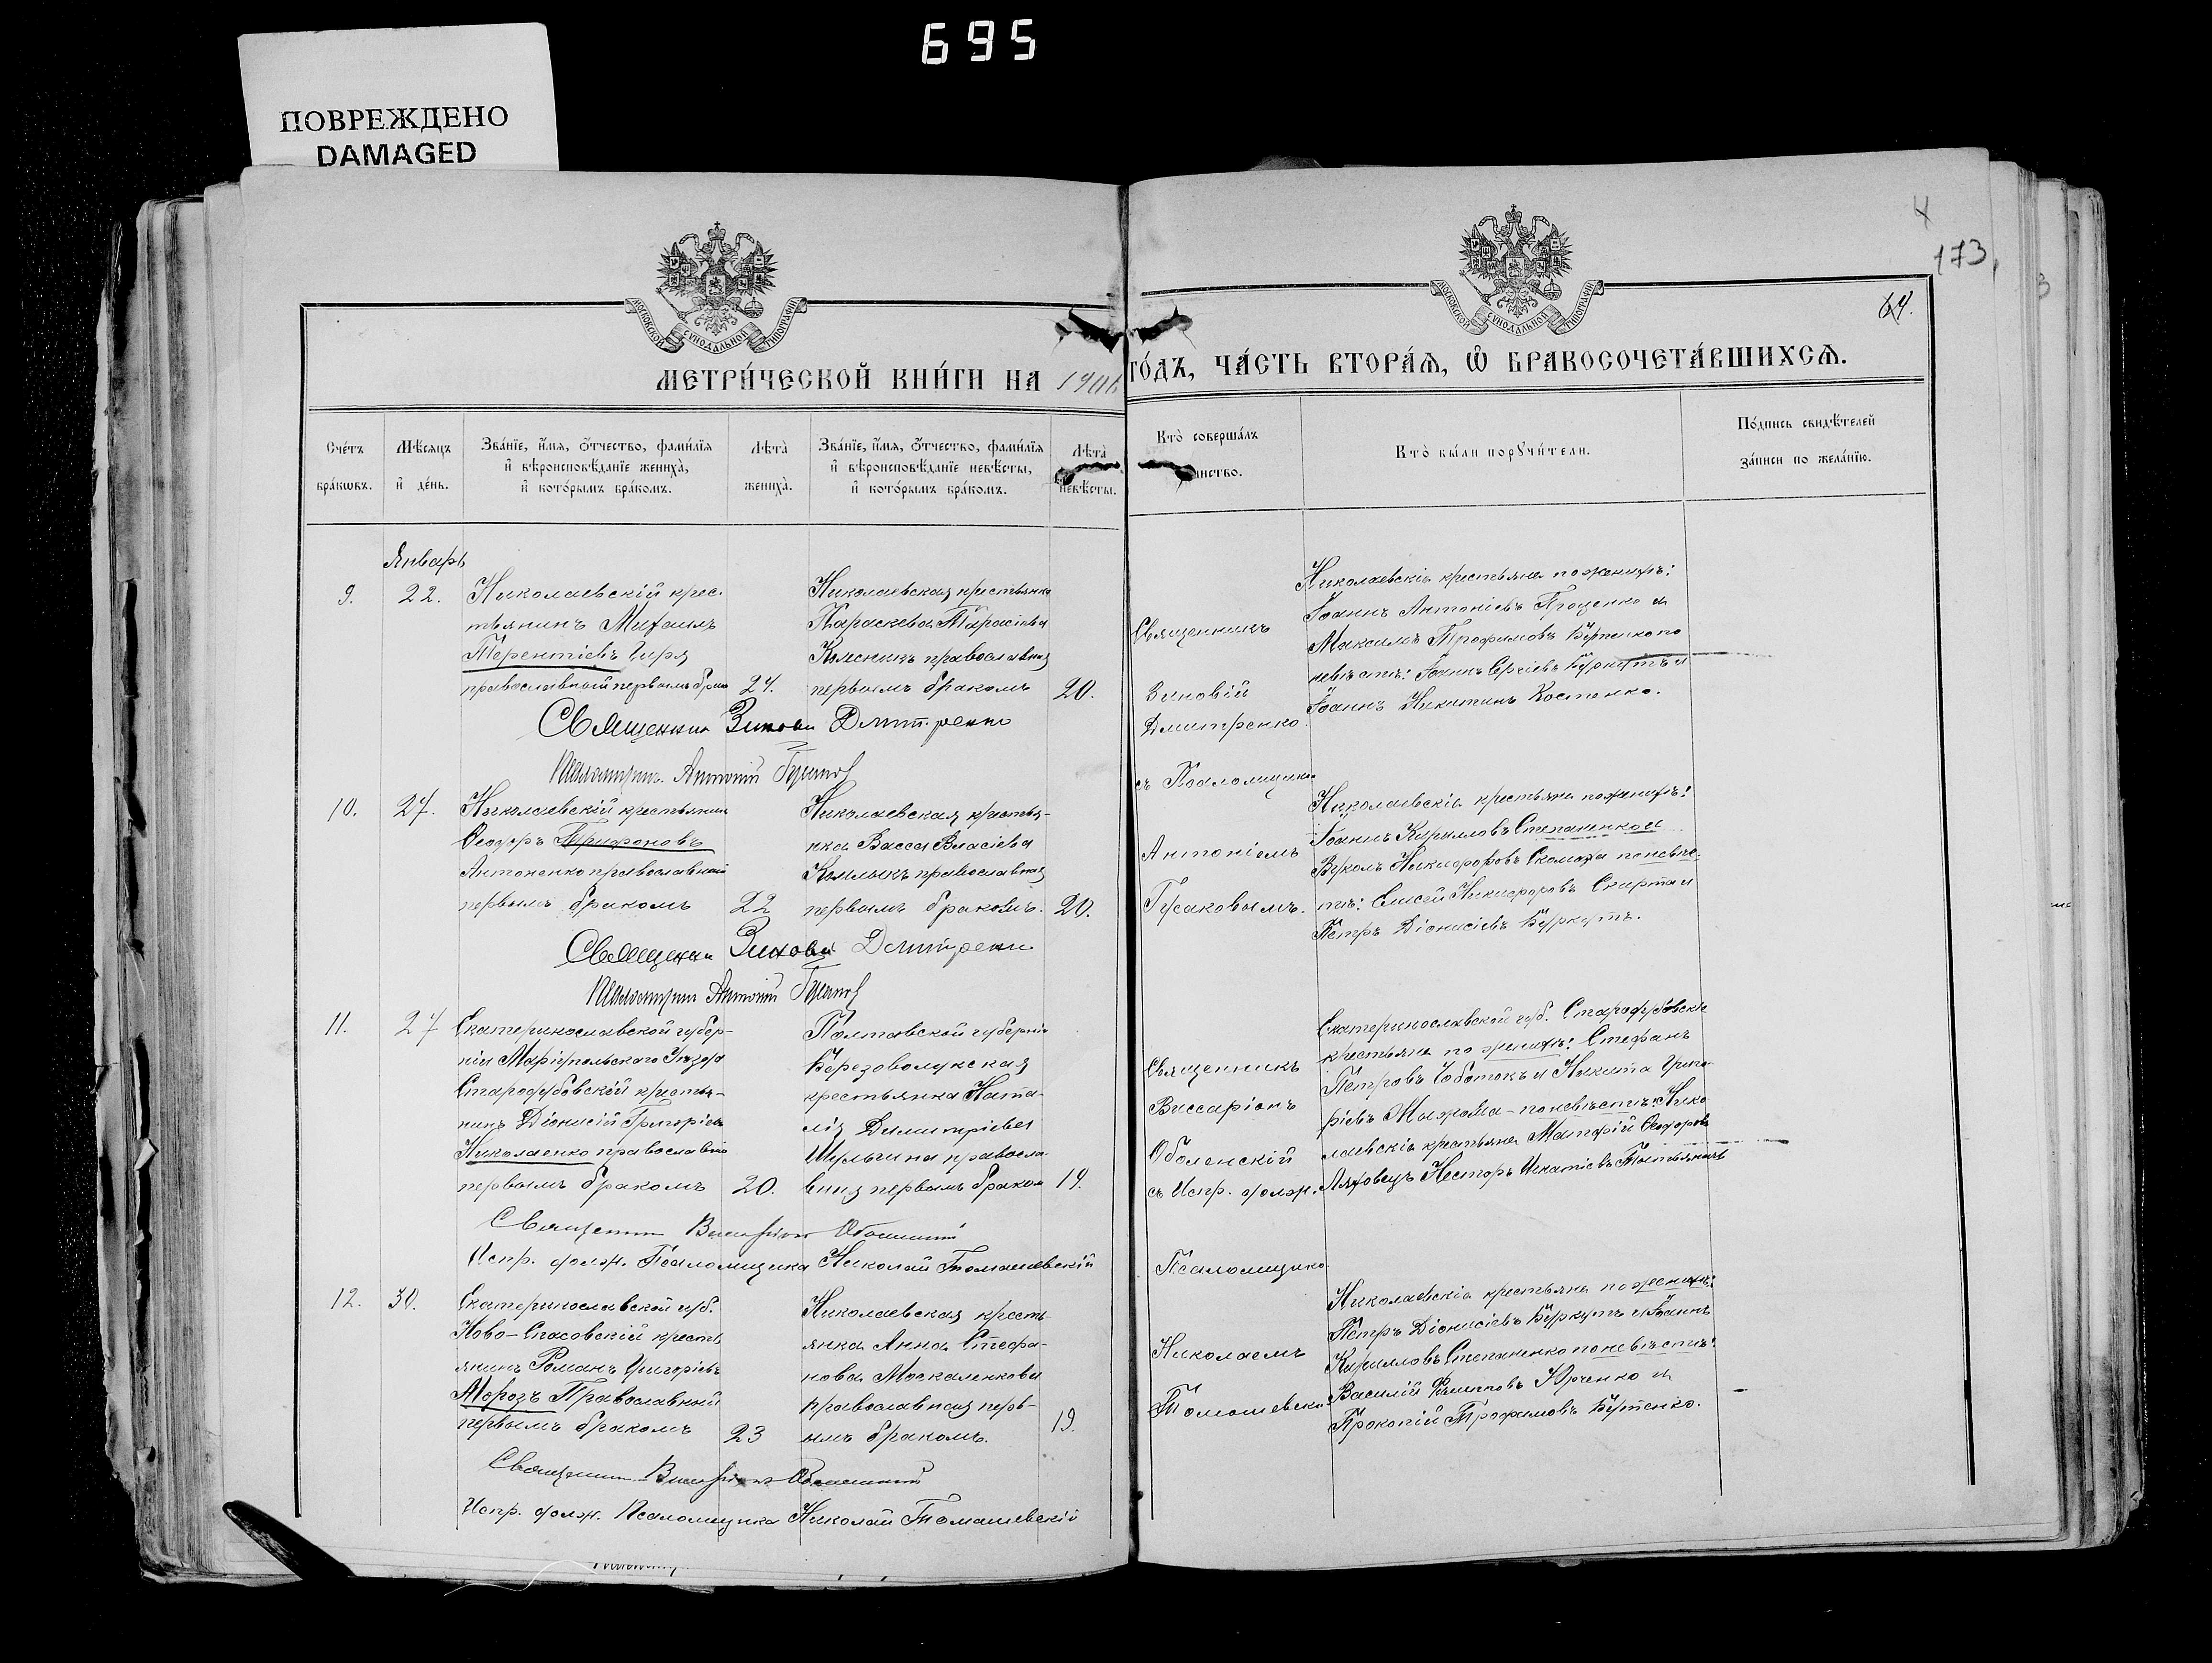 695
ПОВРЕЖДЕНО
DAMAGED
4
173,
64.
МОСКОВСКОЙ СУНОДАЛЬНОЙ ТИПОГРАФИИ
МОСКОВСКОЙ СУНОДАЛЬНОЙ ТИПОГРАФИИ
МЕТРИ́ЧЕСКОЙ КНИ́ГИ НА 1906 ГО́ДЪ, ЧА́СТЬ ВТОРА́Я, Ѿ БРАКОСОЧЕТА́ВШИХСѦ.
Сче́тъ
бра́кѡвъ.
Мѣ́сяцъ
и҆ де́нь.
Зва́нїе, и҆́мя, ѻ҆́тчество, фами́лїя
и҆ вѣроисповѣ́данїе жениха̀,
и҆ кото́рымъ бра́комъ.
Лѣ́та
жениха̀.
Зва́нїе, и҆́мя, ѻ҆́тчество, фами́лїя
и҆ вѣроисповѣ́данїе невѣ́сты,
и҆ кото́рымъ бра́комъ.
Лѣ́та
невѣ́сты.
Кто̀ соверша́лъ
инство.
Кто̀ бы́ли порꙋчи́тели.
По́дпись свидѣ́телей
за́писи по жела́нїю.
Январь
9.
22.
Николаевскій крес-
тьянинъ Михаилъ
Терентіевъ Цыра
православный первымъ брак
24.
Николаевская крестьянка
Параскева Тарасіева
православная
первымъ бракомъ
20.
Священникъ
Зиновій
Дмитренко
съ Псаломщико
Николаевскіе крестьяне по женихѣ:
Іоаннъ Антоніевъ Проценко и
Максимъ Трофимовъ Бутенко по
невѣстѣ: Іоаннъ Сергіевъ Буркутъ и
Іоаннъ Никитинъ Костенко.
Священник Зинови Дмитренко
Псаломщик Антоній Гусаков
10.
27.
Николаевскій крестьянин
Ѳеодоръ Трифоновъ
Антоненко православный
первымъ бракомъ
22
Николаевская крестья-
нка Васса Власіева
Калмыкъ православная
первымъ бракомъ.
20.
Антоніемъ
Гусаковымъ.
Николаевскіе крестьяне по женихѣ:
Іоаннъ Кирилловъ Степаненко и
Вуколъ Никифоровъ по невѣс
тѣ: Елисей Никифоровъ Скирта и
Петръ Діонисіевъ Буркутъ.
Священник Зинови Дмитренко
Псаломщик Антоній Гусаков
11.
27
Екатеринославской губер-
ніи Маріупольскаго Уѣзда
Стародубовскій крестья-
нинъ Діонисій Григоріевъ
Николаенко православный
первымъ бракомъ
20.
Полтавской губерніи
Березоволукская
крестьянка Ната-
лія Димитріева
Шульгина правосла-
вная первымъ браком
19.
Священникъ
Виссаріонъ
Оболенскій
съ Испр. долж.
Псаломщика
Екатеринославской губ. Стародубовскіе
крестьяне по женихѣ: Стефанъ
Петровъ Чоботокъ и Никита Григо-
ріевъ - по невѣстѣ: Нико
лаевскіе крестьяне Матфій Ѳеодоровъ
Ляховецъ Несторъ Игнатіевъ
Священник Виссаріон Оболенскій
Испр. долж. Псаломщика Николай Томашевскій
12.
30.
Екатеринославской губ.
Ново-Спасовскій кресть
янинъ Романъ Григоріевъ
Морозъ Православный
первымъ бракомъ
23
Николаевская кресть-
янка Анна Стефа-
нова Москаленкова
православная перв-
ымъ бракомъ.
19.
Николаемъ
Томашевски
Николаевскіе крестьяне по женихѣ:
Петръ Діонисіевъ Буркутъ и Іоаннъ
Кирилловъ Степаненко по невѣстѣ:
Василій Филиповъ Юрченко и
Прокопій Трофимовъ Бутенко.
Священник Виссаріон Оболенскій
Испр. долж. Псаломщика Николай Томашевскій